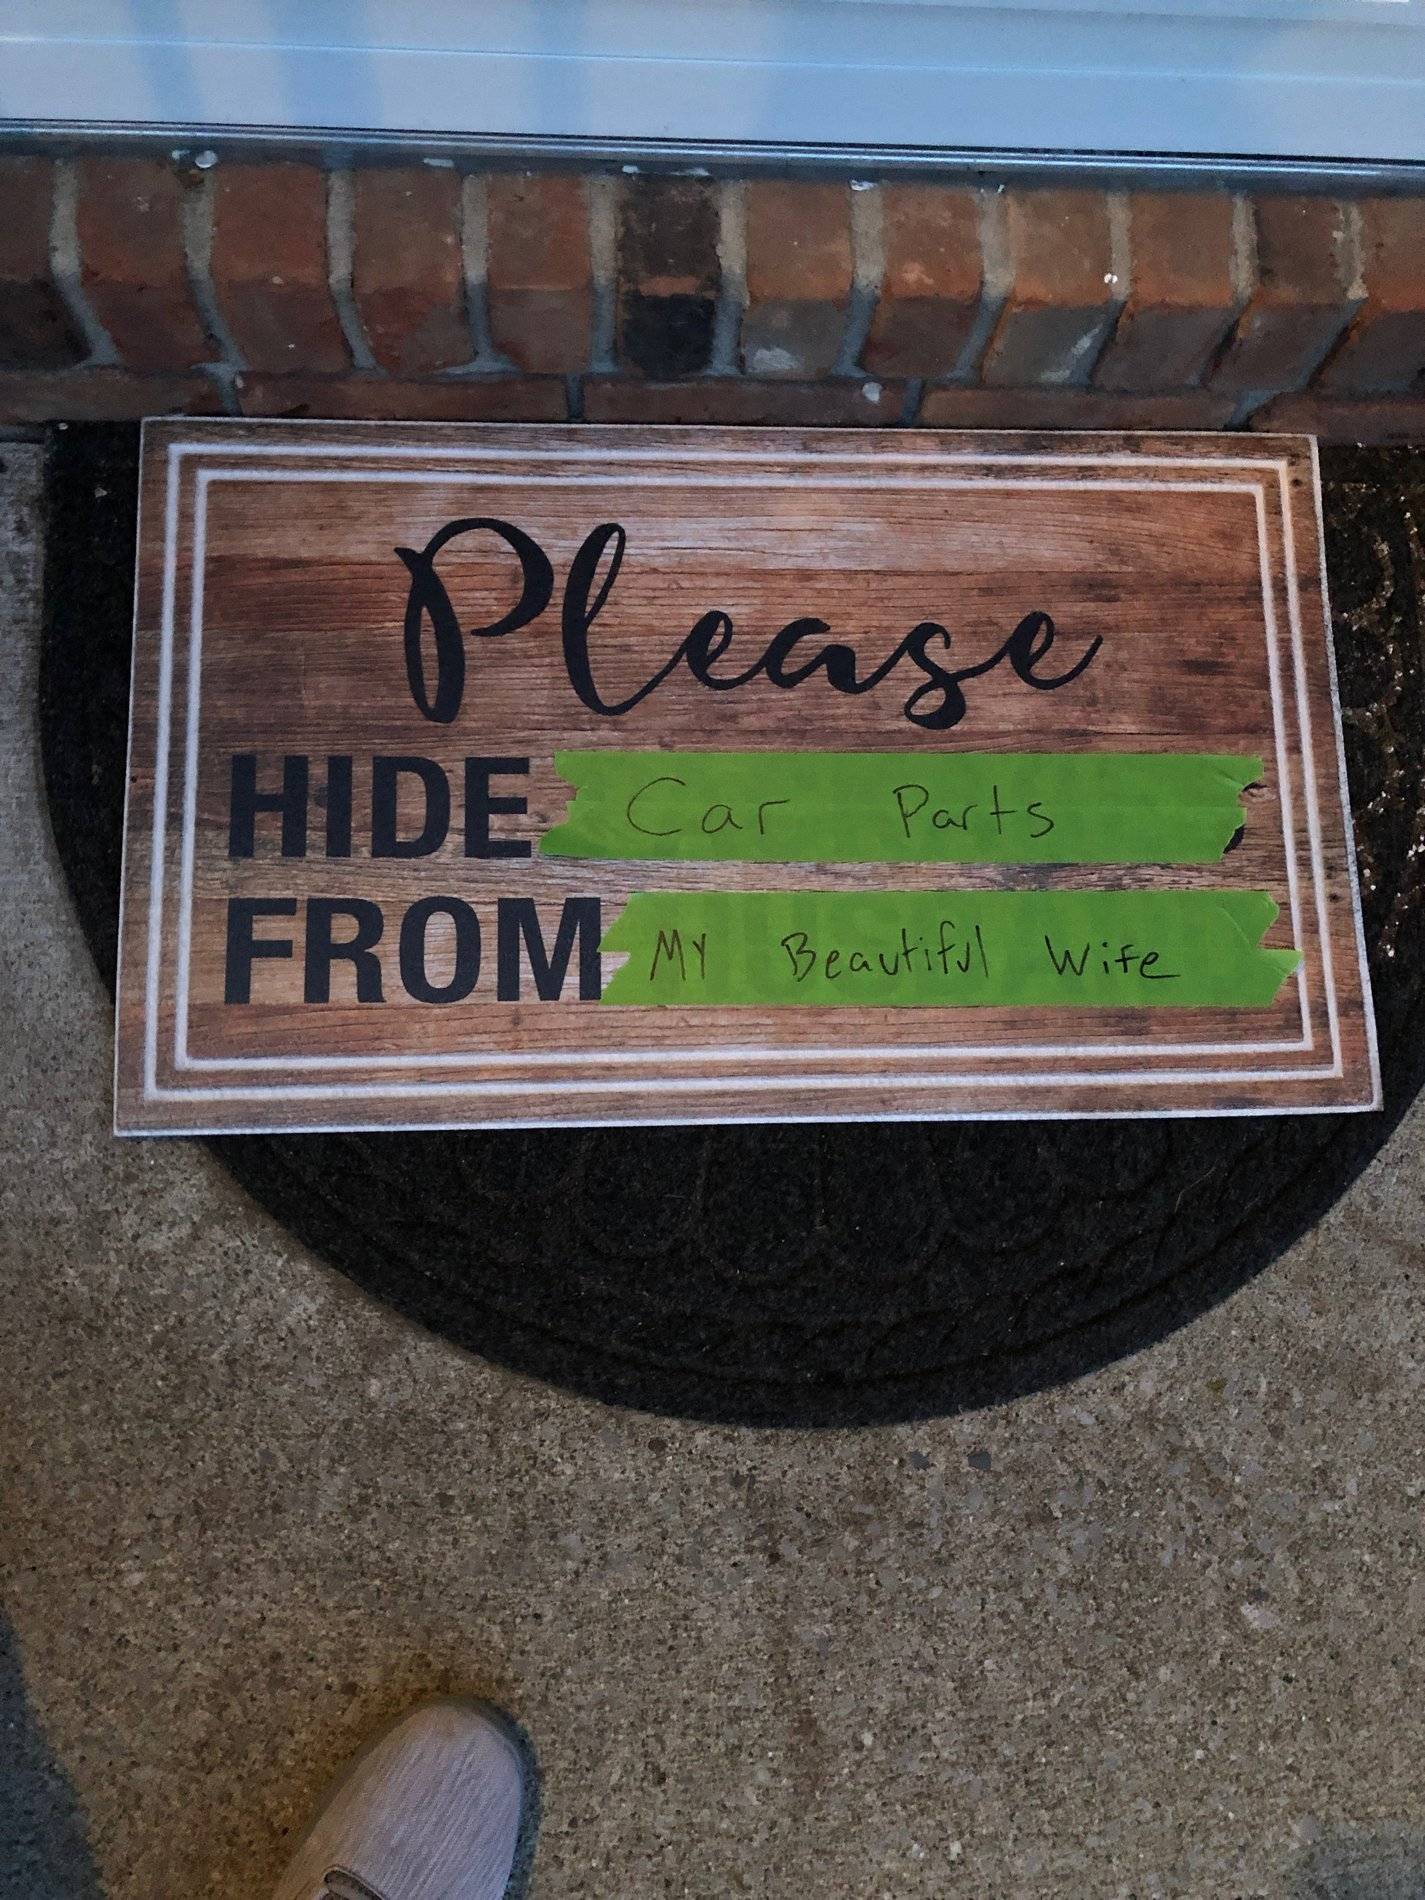 Please
HIDE Car Parts
FROM My Beautiful Wife